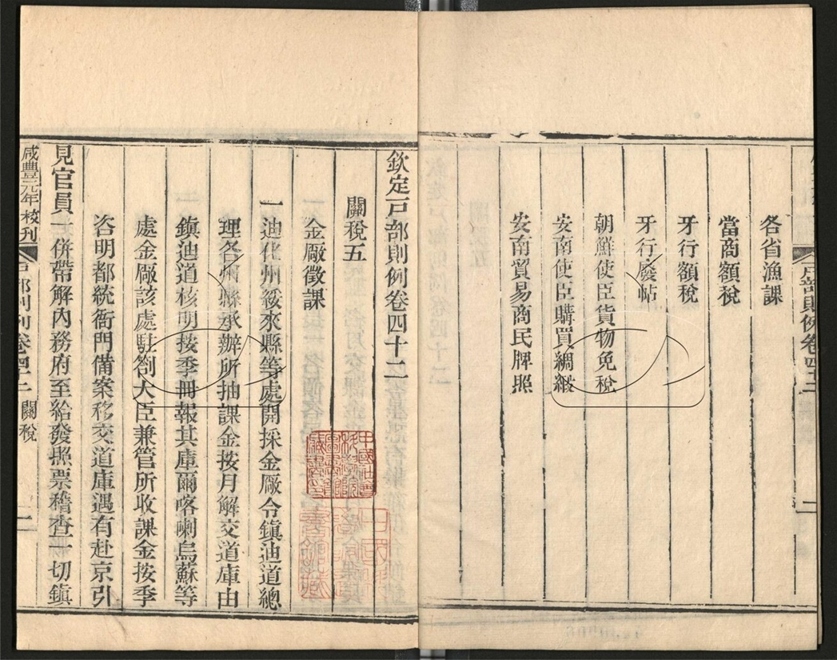 戶部則例卷四十二
二
各省漁課
當商額稅
牙行額稅
牙行廢帖
朝鮮使臣貨物免稅
安南使臣購買綢緞
安南貿易商民牌照
欽定戶部則例卷四十二
關稅五
金厰徵課
一迪化州綏來縣等處開採金厰令鎮迪道總
理各州縣承辦所抽課金按月解交道庫由
鎮迪道核明按季冊報其庫爾喀喇烏蘇等
處金厰該處駐劄大臣兼管所收課金按季
咨明都統衙門備案移交道庫遇有赴京引
見官員一併帶解內務府至給發照票稽查一切鎮
咸豐元年校刊
戶部則例卷四十二 關稅
一